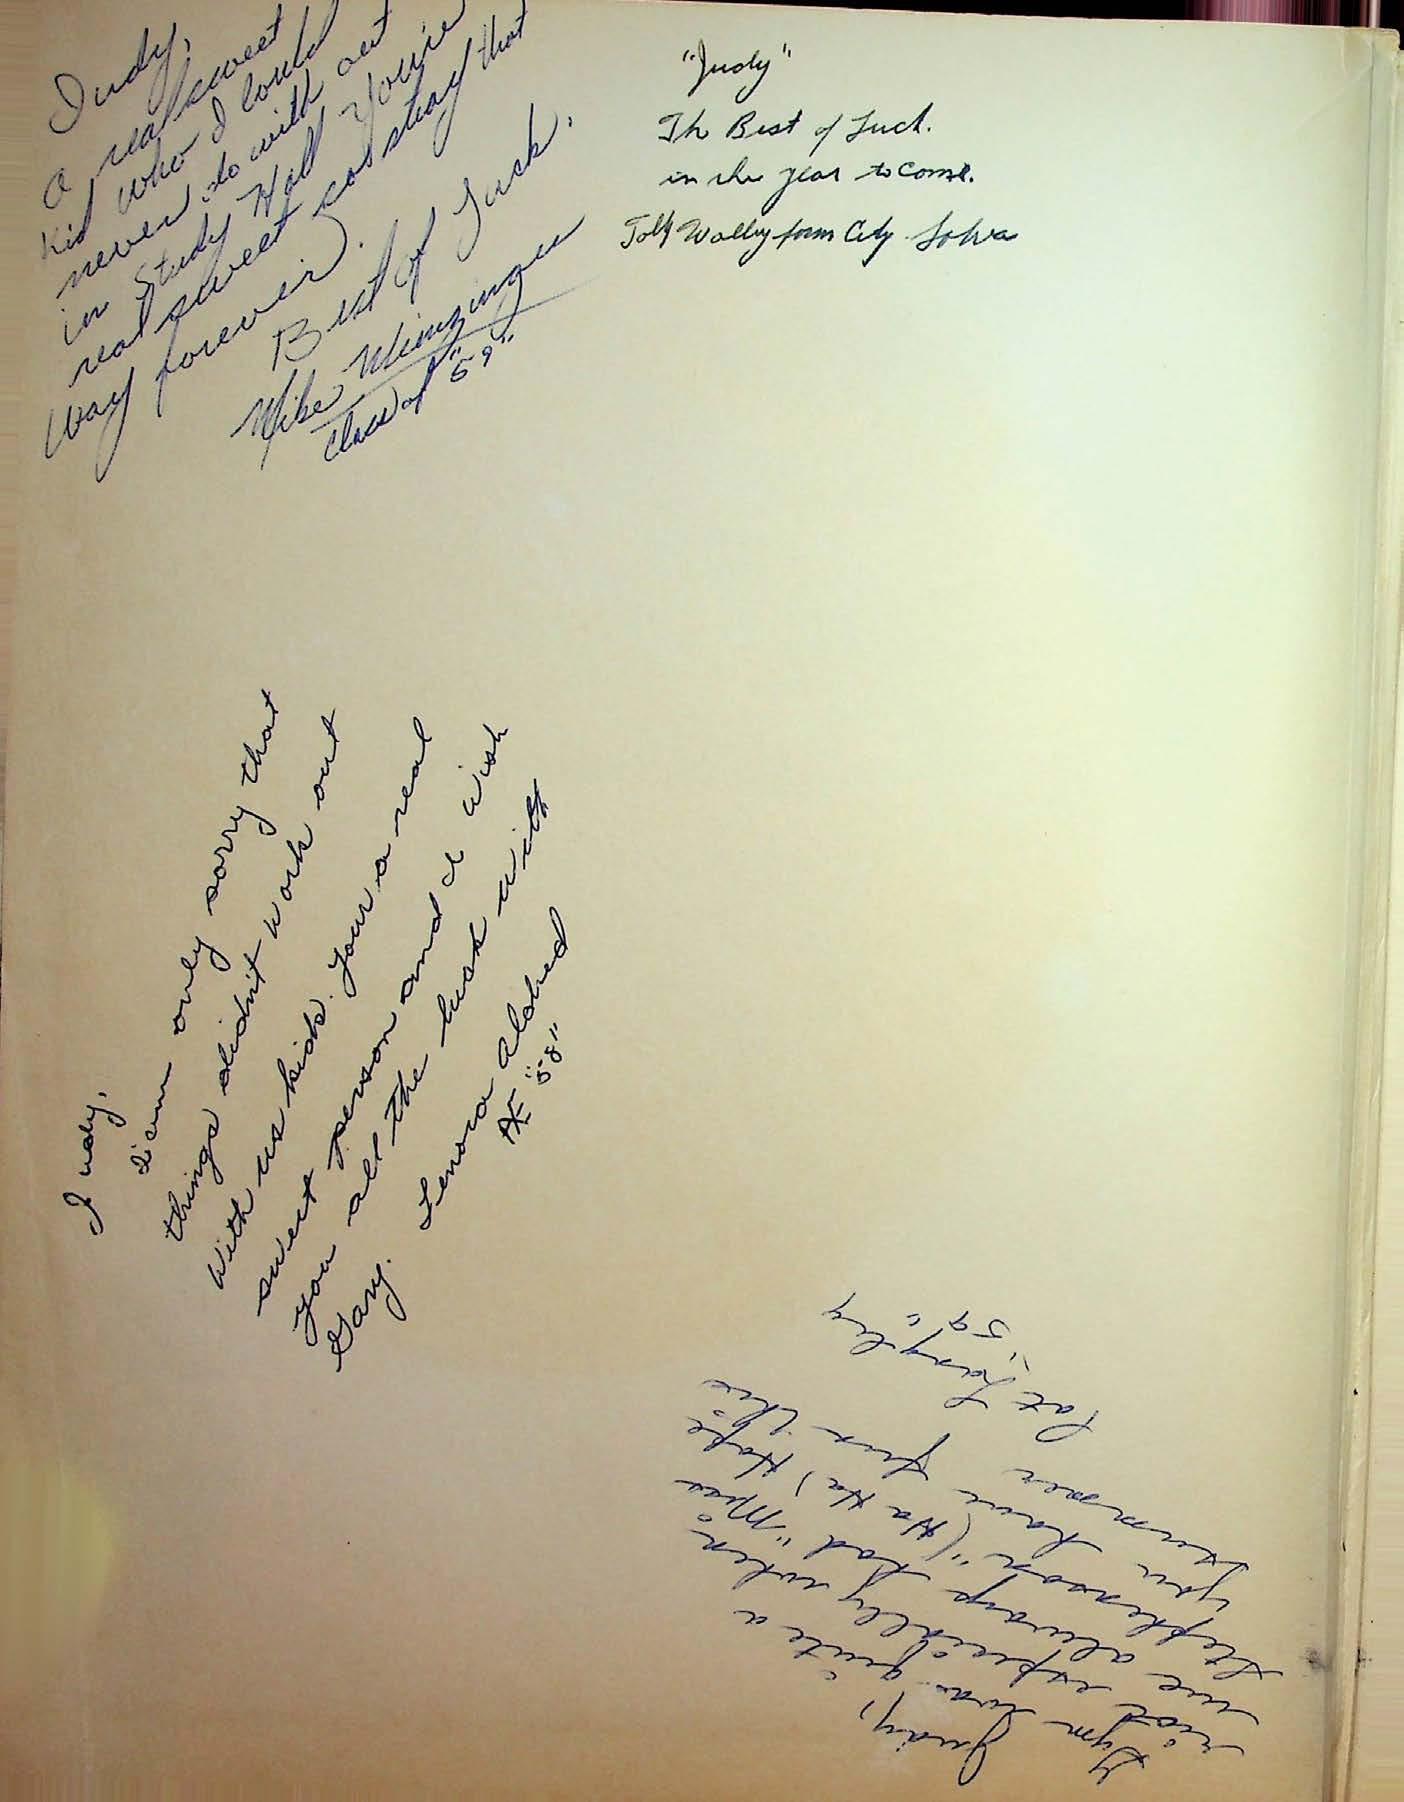 Judy,
a real sweet
kid who I could
never do with out
in Study Hall You're
real sweet so stay that
way forever.
Best of Luck.
Mike
Class of "59"
"Judy"
Th Best of Luck.
in the year to come.
City
Judy,
I am only sorry that
things didn't work out
with us kids. Your a real
sweet person and I wish
you all the luck with
Gary.
Lenora Aldred
"58"
Judy,
Gym was quite a
riot especially when
we always had "Miss
Stephenson" (Ha Ha) Hope
you have fun this
summer
Pat Langley
"59"